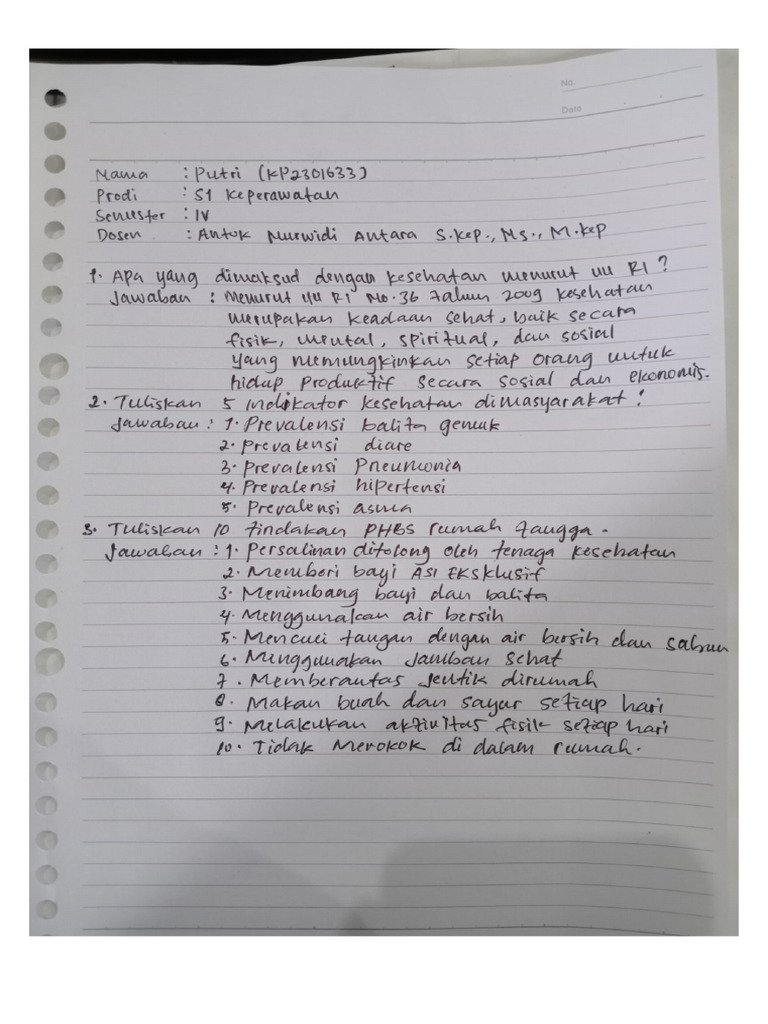 No.
Date
Nama : Putri (KP2301633)
Prodi : S1 Keperawatan
Semester : IV
Dosen : Antok Nurwidi Antara S.kep., Ns., M.kep
1. Apa yang dimaksud dengan kesehatan menurut uu RI ?
Jawaban : Menurut uu RI No.36 tahun 2009 kesehatan
merupakan keadaan sehat, baik secara
fisik, mental, spiritual, dan sosial
yang memungkinkan setiap orang untuk
hidup produktif secara sosial dan ekonomis.
2. Tuliskan 5 indikator kesehatan dimasyarakat !
Jawaban : 1. Prevalensi balita gemuk
2. Prevalensi diare
3. Prevalensi Pneumonia
4. Prevalensi hipertensi
5. Prevalensi asma
3. Tuliskan 10 tindakan PHBS rumah tangga.
Jawaban : 1. Persalinan ditolong oleh tenaga kesehatan
2. Memberi bayi ASI EKSklusif
3. Menimbang bayi dan balita
4. Menggunakan air bersih
5. Mencuci tangan dengan air bersih dan sabun
6. Menggunakan jamban sehat
7. Memberantas jentik dirumah
8. Makan buah dan sayur setiap hari
9. Melakukan aktivitas fisik setiap hari
10. Tidak Merokok di dalam rumah.